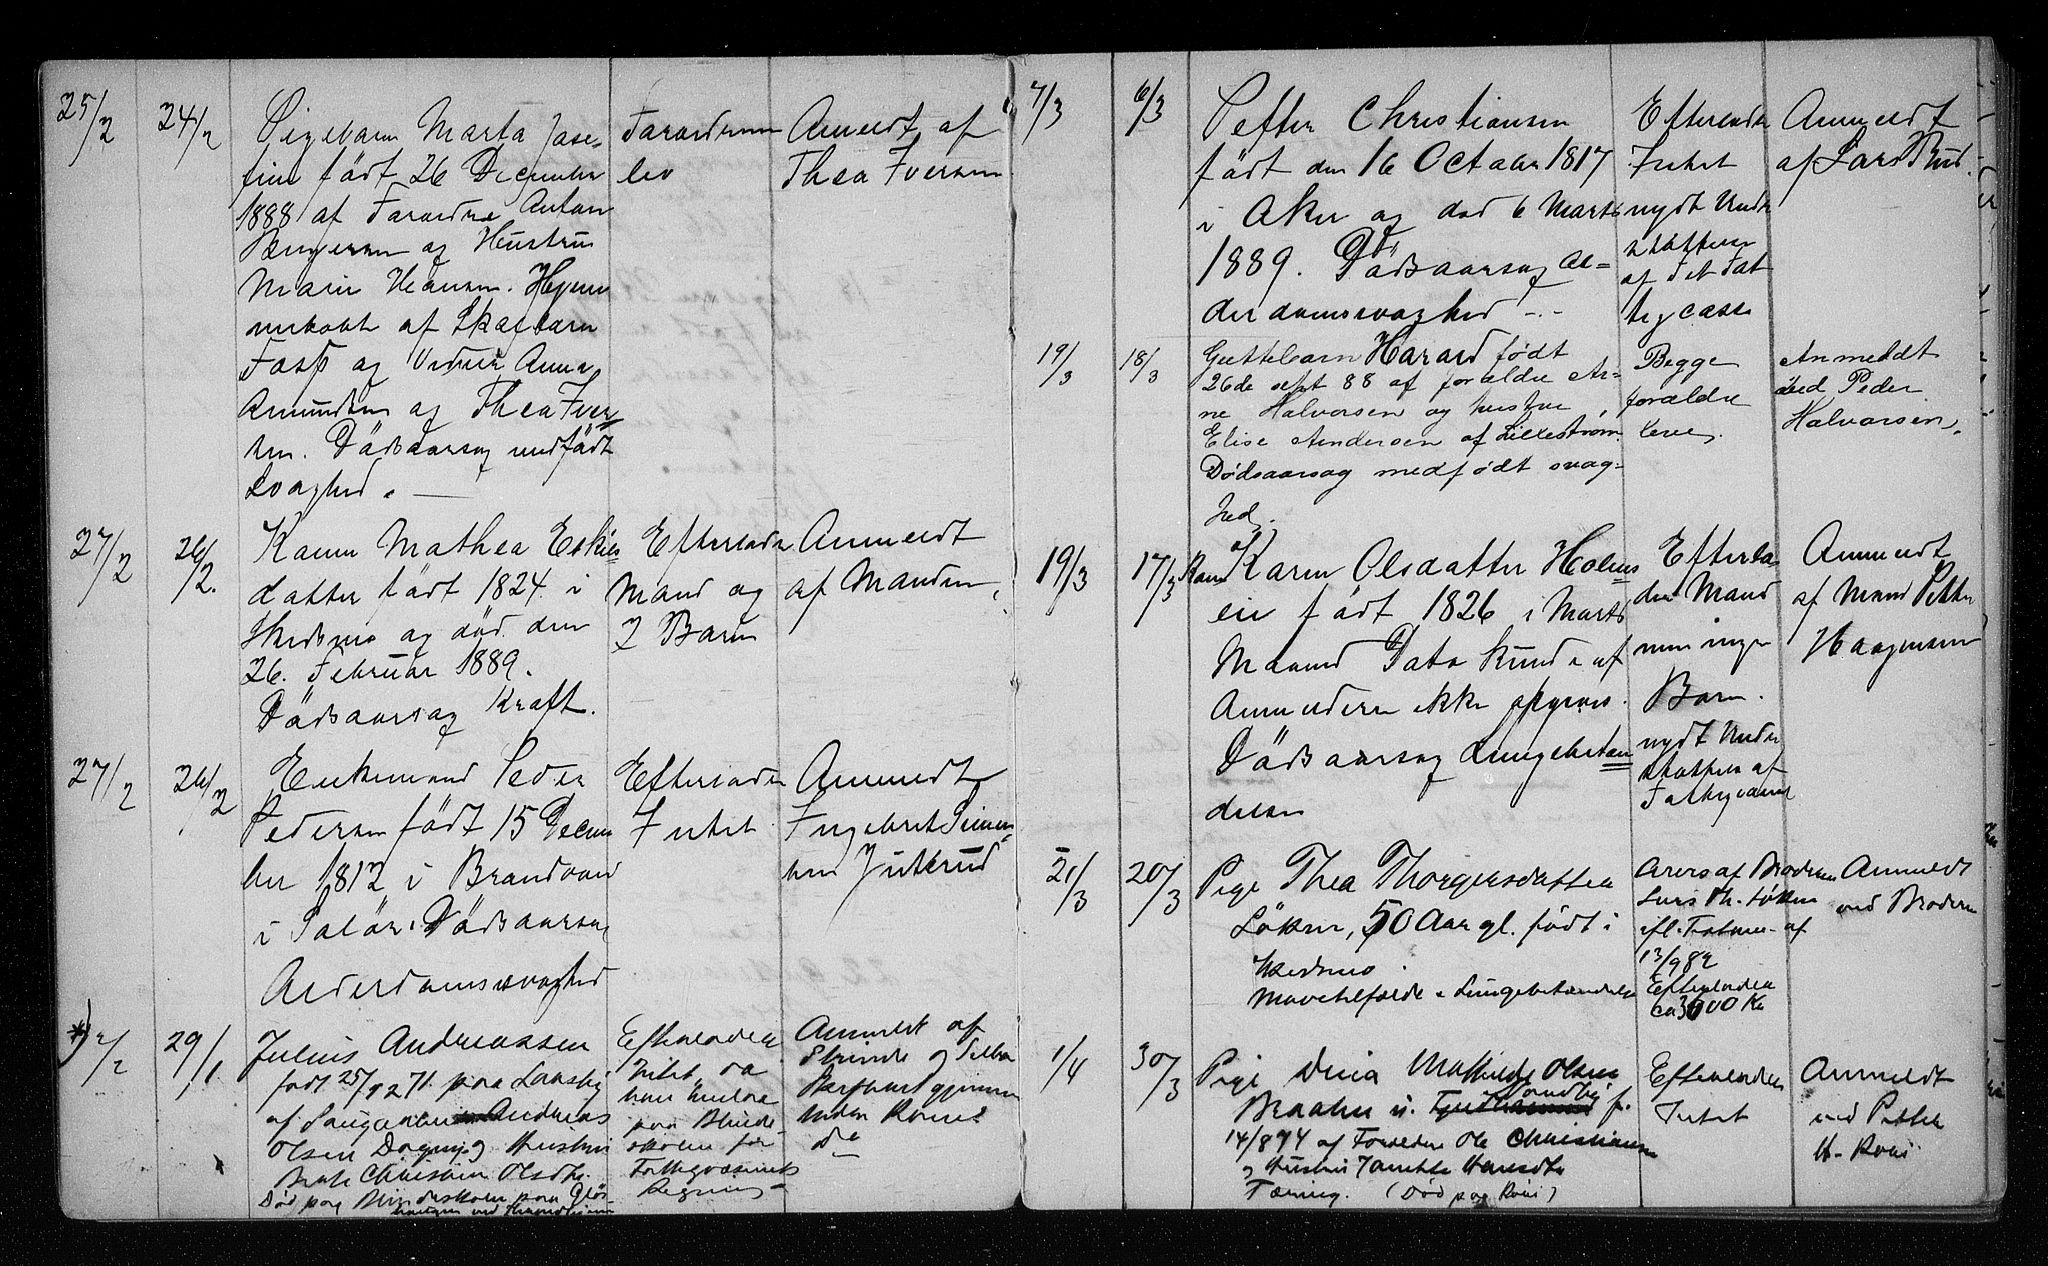 25/2 24/2
Pigebarn Marta Jose-
fine född 26 December
1888 af Foraldre Anton
Bergersen og Hustru
Marie Hansen. Hjem-
medøbt af
og Anne
Amundsen og Thea Iver-
sen. Dödsaarsag medfödt
Svaghed.
Foraldrene
lev
Anmeldt af
Thea Iversen
27/2 26/2.
Karen Mathea Eskils-
datter födt 1824 i
Skedsmo og död den
26. Februar 1889.
Dödsaarsag Kræft.
Efterlader
Mand og
2 Barn
Anmeldt
af Manden
27/2 26/2
Enkemand Peder
Pedersen födt 15 Decem
ber 1812 i Brandvold
i Solör. Dödsaarsag
Alderdomssvaghed
Efterlader
Intet
Anmeldt
Ingebret Simen-
sen
2/2 29/1
Julius Andreassen
født 25/9 71 paa
af Andreas
Olsen og Hustru
Christine Olsdtr.
Død paa Blindeskolen paa
ved Throndhjem
Efterlader
Intet, da
han
paa Blinde-
skolen for
Fattigvæsenets
Regning
Anmeldt af
Strinde og Selbu

7/3 6/3
Petter Christiansen
födt den 16 October 1817
i Aker og död 6 Marts
1889. Dödsaarsag Al-
derdomssvaghed -.-
Efterlader
Intet
nydt Under
støttelse
af Fet Fat
tigcasse
Anmeldt
af Lars Rud.
19/3 18/3
Guttebarn Harald født
26de sept 88 af forældre Ar-
ne Halvorsen og hustru
Elise Andersen af Lillestrøm.
Dødsaarsag medfødt svag-
hed.
Begge
forældre
leve.
Anmeldt
ved Peder
Halvorsen.
19/3 17/3
Karen Olsdatter Holms
eie födt 1826 i Marts
Maaned Dato kunde af
Anmelderen ikke opgives.
Dödsaarsag Lungebetæn
delse
Efterla
der Mand
men ingen
Barn.
nydt Under
støttelse af
Fattigvæsenet
Anmeldt
af Mand Petter
Haagensen
21/3 20/3
Pige Thea Thorgersdatter
Löken, 50 Aar gl. født i
Skedsmo.
Mavetilfælde & Lungebetændelse
Arves af Broderen
Lars Th. Løken
ifl. Testam. af
13/9 82
Efterlader
ca 3600 Kr
Anmeldt
ved Broderen
1/4 30/3
Pige Dina Mathilde Olsen
Braaten u. Tandberg f.
14/8 74 af Forældre Ole Christiansen
og Hustru Janikke Hansdtr
Tæring. (Død paa Roven)
Efterlader
Intet
Anmeldt
ved Petter
H.